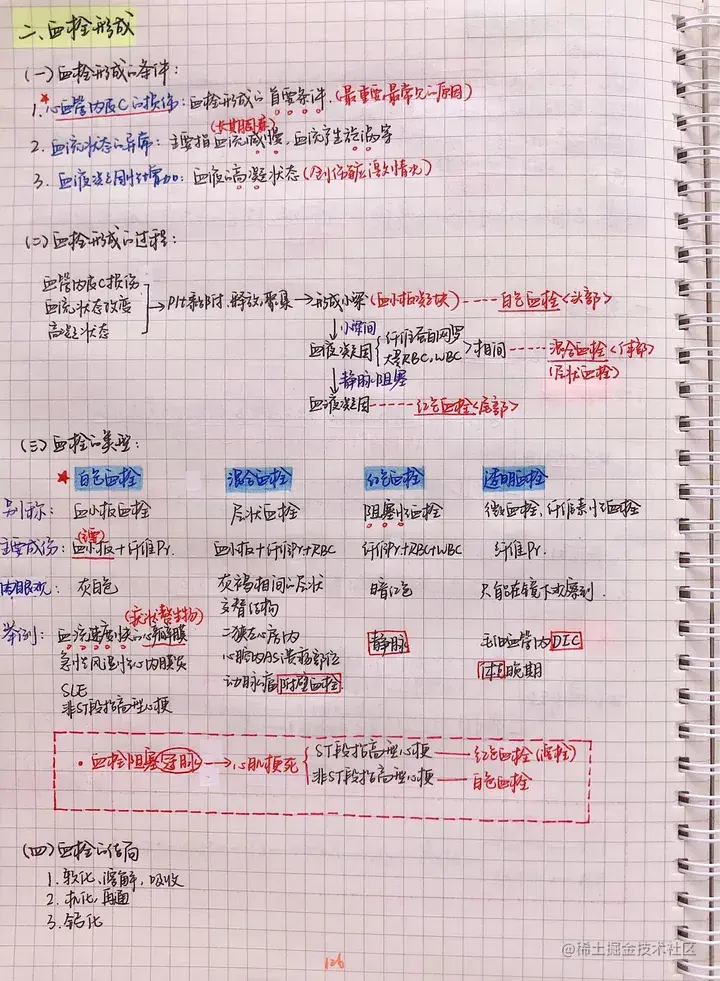 二、血栓形成
(一)血栓形成的条件:
1.心血管内皮C的损伤:血栓形成的首要条件.(最重要最常见的原因)
(长期卧床)
2.血流状态的异常:主要指血流减慢,血流产生旋涡等
3.血液凝固性增加:血液的高凝状态(创伤
(二)血栓形成的过程:
血管内皮C损伤
血流状态改变
高凝状态
→Plt黏附、释放、聚集→形成小梁(血小板凝块)----白色血栓<头部>
↓小梁间
血液凝固{纤维蛋白网罗 大量RBC、WBC>相间----混合血栓<体部>
(层状血栓)
↓静脉阻塞
血液凝固------红色血栓<尾部>
(三)血栓的类型:
★白色血栓 混合血栓 红色血栓 透明血栓
别称: 血小板血栓 层状血栓 阻塞性血栓 微血栓、纤维素性血栓
(主要)
主要成份: 血小板+纤维Pr. 血小板+纤维Pr+RBC 纤维Pr+RBC+WBC 纤维Pr.
肉眼观: 灰白色 灰褐相间的层状 暗红色 只能在镜下观察到.
交替结构
(疣状赘生物)
举例: 血流速度快的心瓣膜 二狭左心房内 静脉 毛细血管内DIC
急性风湿性心内膜炎 心腔内AS溃疡部位 休克晚期
SLE 动脉瘤附壁血栓
非ST段抬高型心梗
·血栓阻塞冠脉→心肌梗死{ST段抬高型心梗——红色血栓(溶栓)
非ST段抬高型心梗——白色血栓
(四)血栓的结局
1.软化、溶解、吸收
2.机化、再通
3.钙化
126
@稀土掘金技术社区